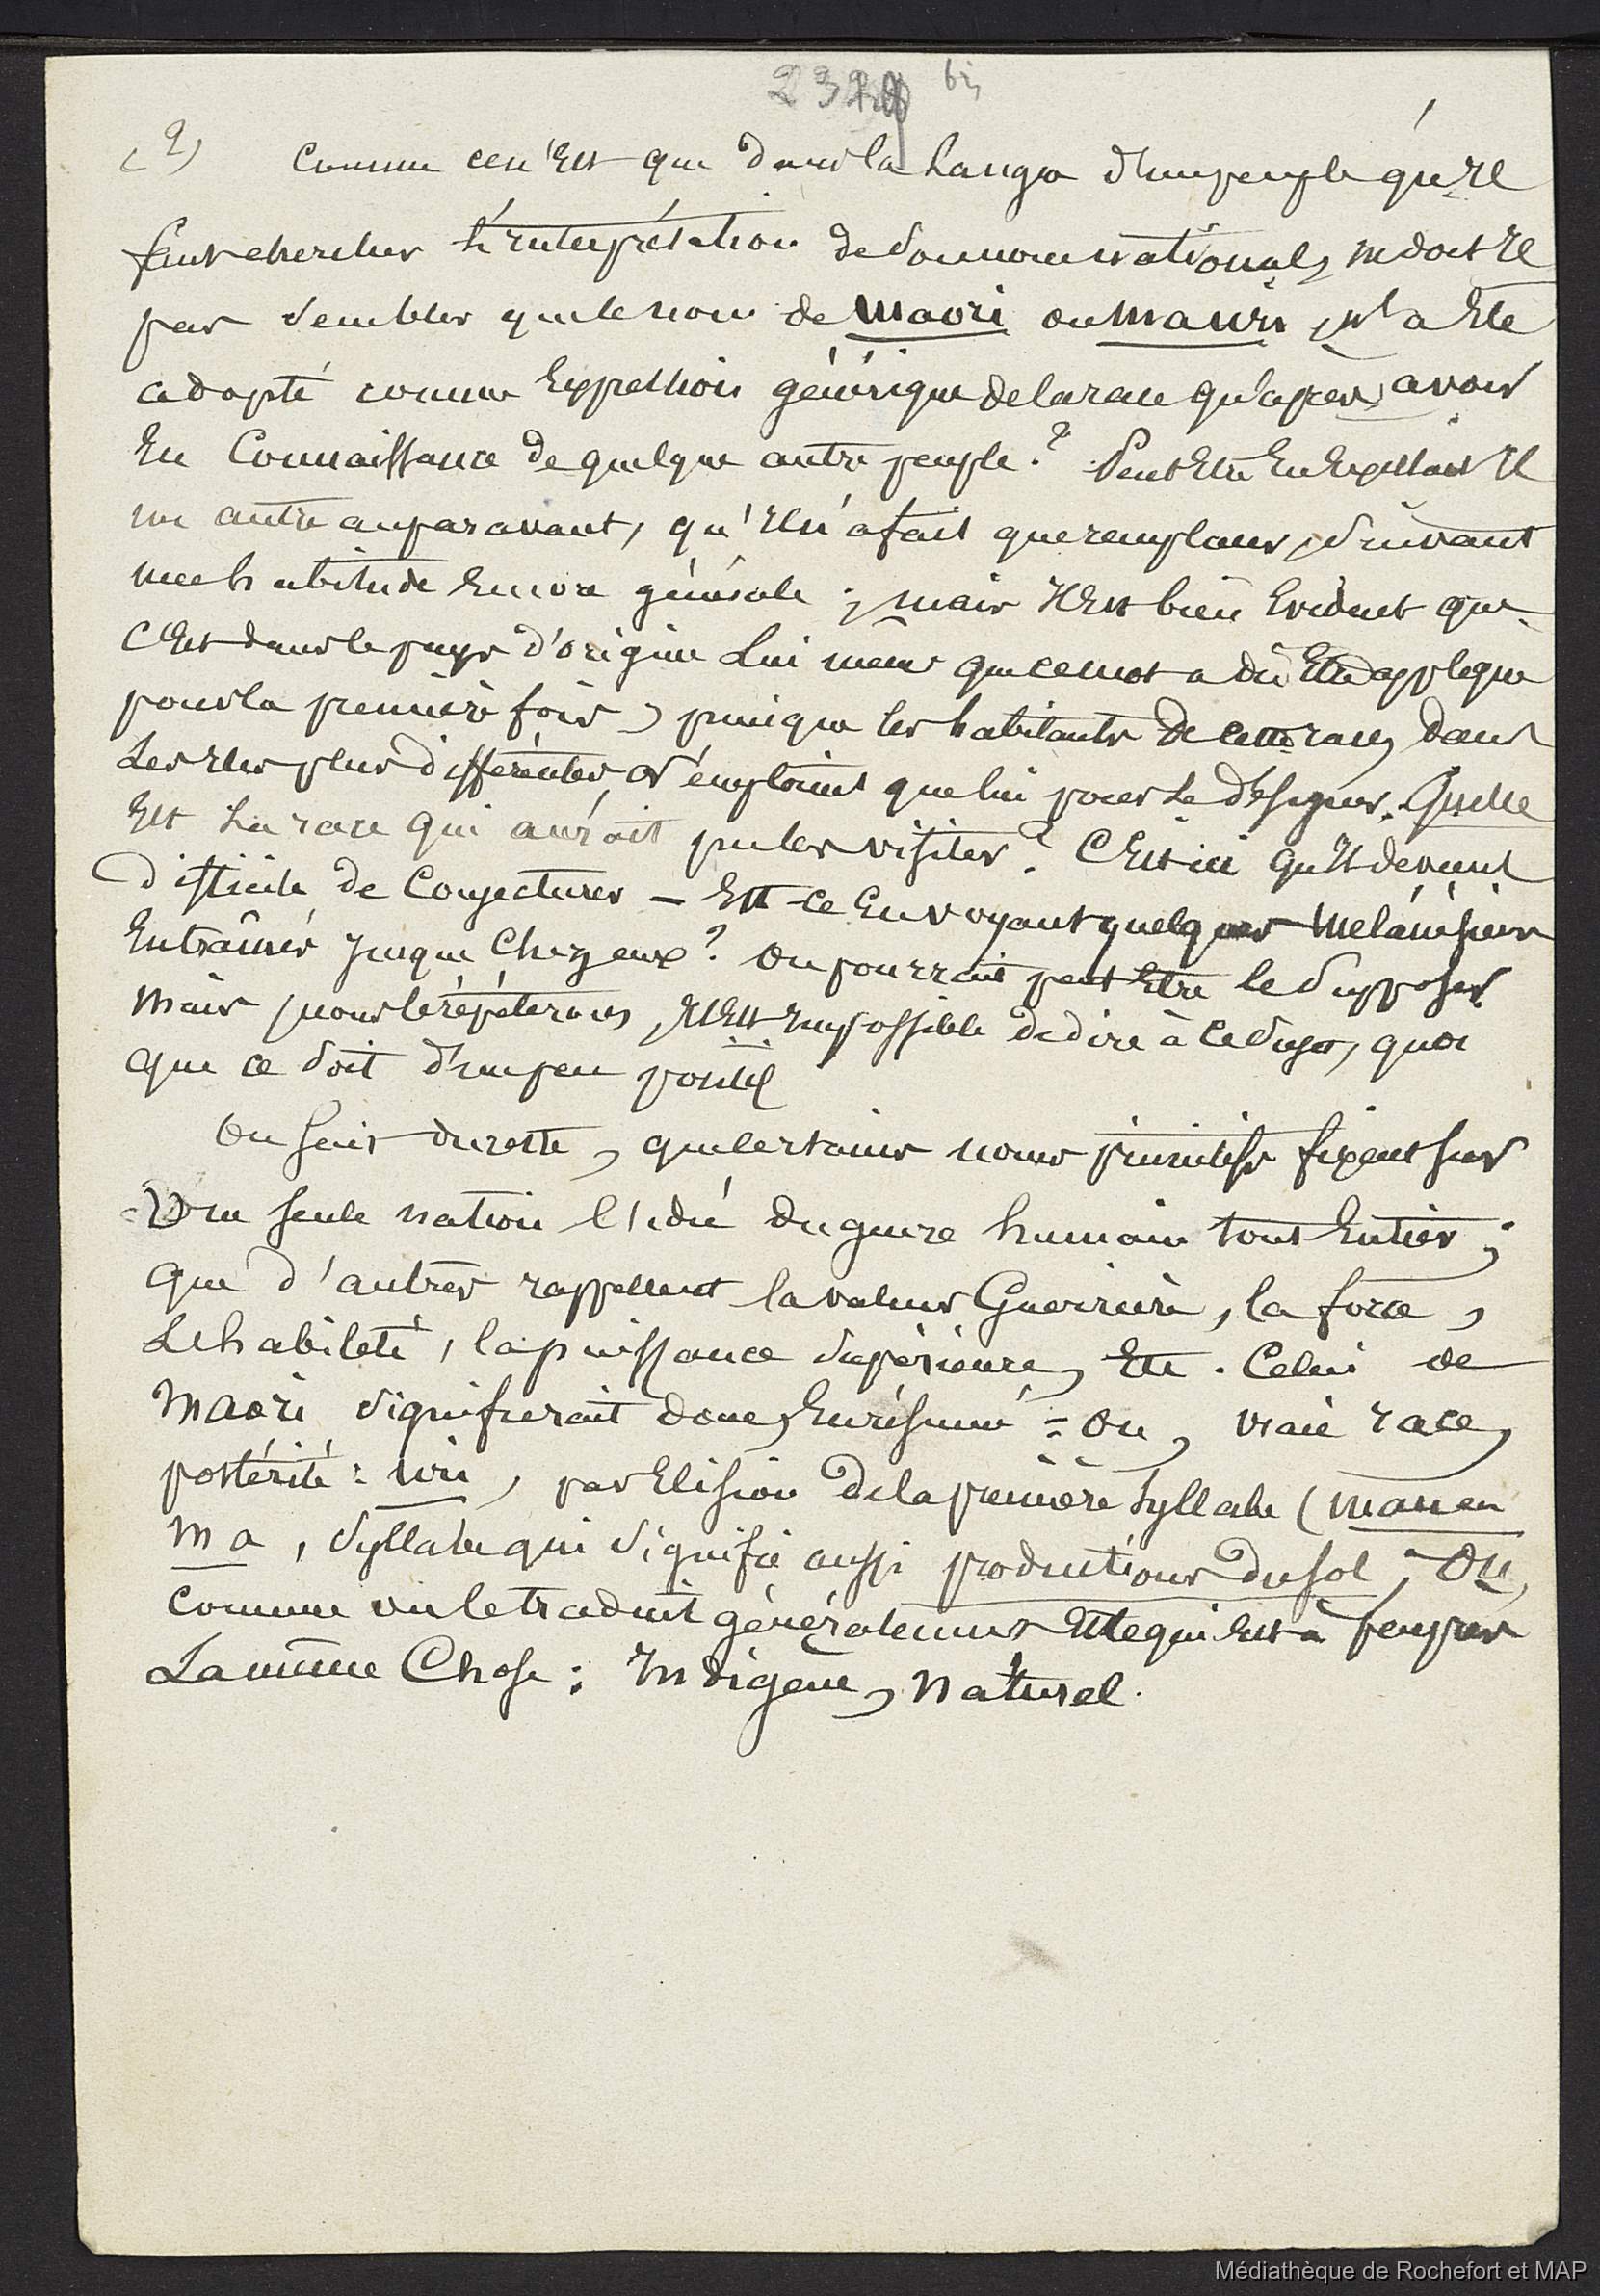 bis
(2) Comme ce n'est que dans la Langue d'un peuple qu'il
faut chercher l'interprétation de son nom national, ne doit il
pas sembler que le nom de maori ou mauri, n'a été
adopté comme expression générique de la race qu'après avoir
eu Connaissance de quelque autre peuple? Peut être en existait il
un autre auparavant, qu'il n'a fait que remplacer, suivant
une habitude encore générale; mais il est bien évident que
c'est dans le pays d'origine Lui même que ce mot a dû être appliqué
pour la première fois, puisque les habitants de cette race, dans
Les iles plus différentes, n'emploient que lui pour se désigner. Quelle
est La race qui aurait pu les visiter? C'est ici qu'il devient
difficile de Conjecturer — Est-ce en voyant quelques Mélanésiens
entraînés jusque Chez eux? on pourrait peut être le supposer
Mais, nous le répéterons, il est impossible de dire à ce sujet, quoi
que ce soit d'un peu positif
On sait du reste, que certains noms primitifs fixent sur
Une seule nation l'idée du genre humain tout entier;
que d'autres rappellent la valeur Guerrière, la force,
L'habileté, la puissance supérieure, etc. Celui de
Maori signifierait donc, en résumé = ou, vraie race,
postérité: uri, par élision de la première syllabe (mau en
ma, syllabe qui signifie aussi productions du sol; ou,
comme on le traduit généralement et ce qui est à peu près
La même Chose: Indigène, Naturel.
Médiathèque de Rochefort et MAP